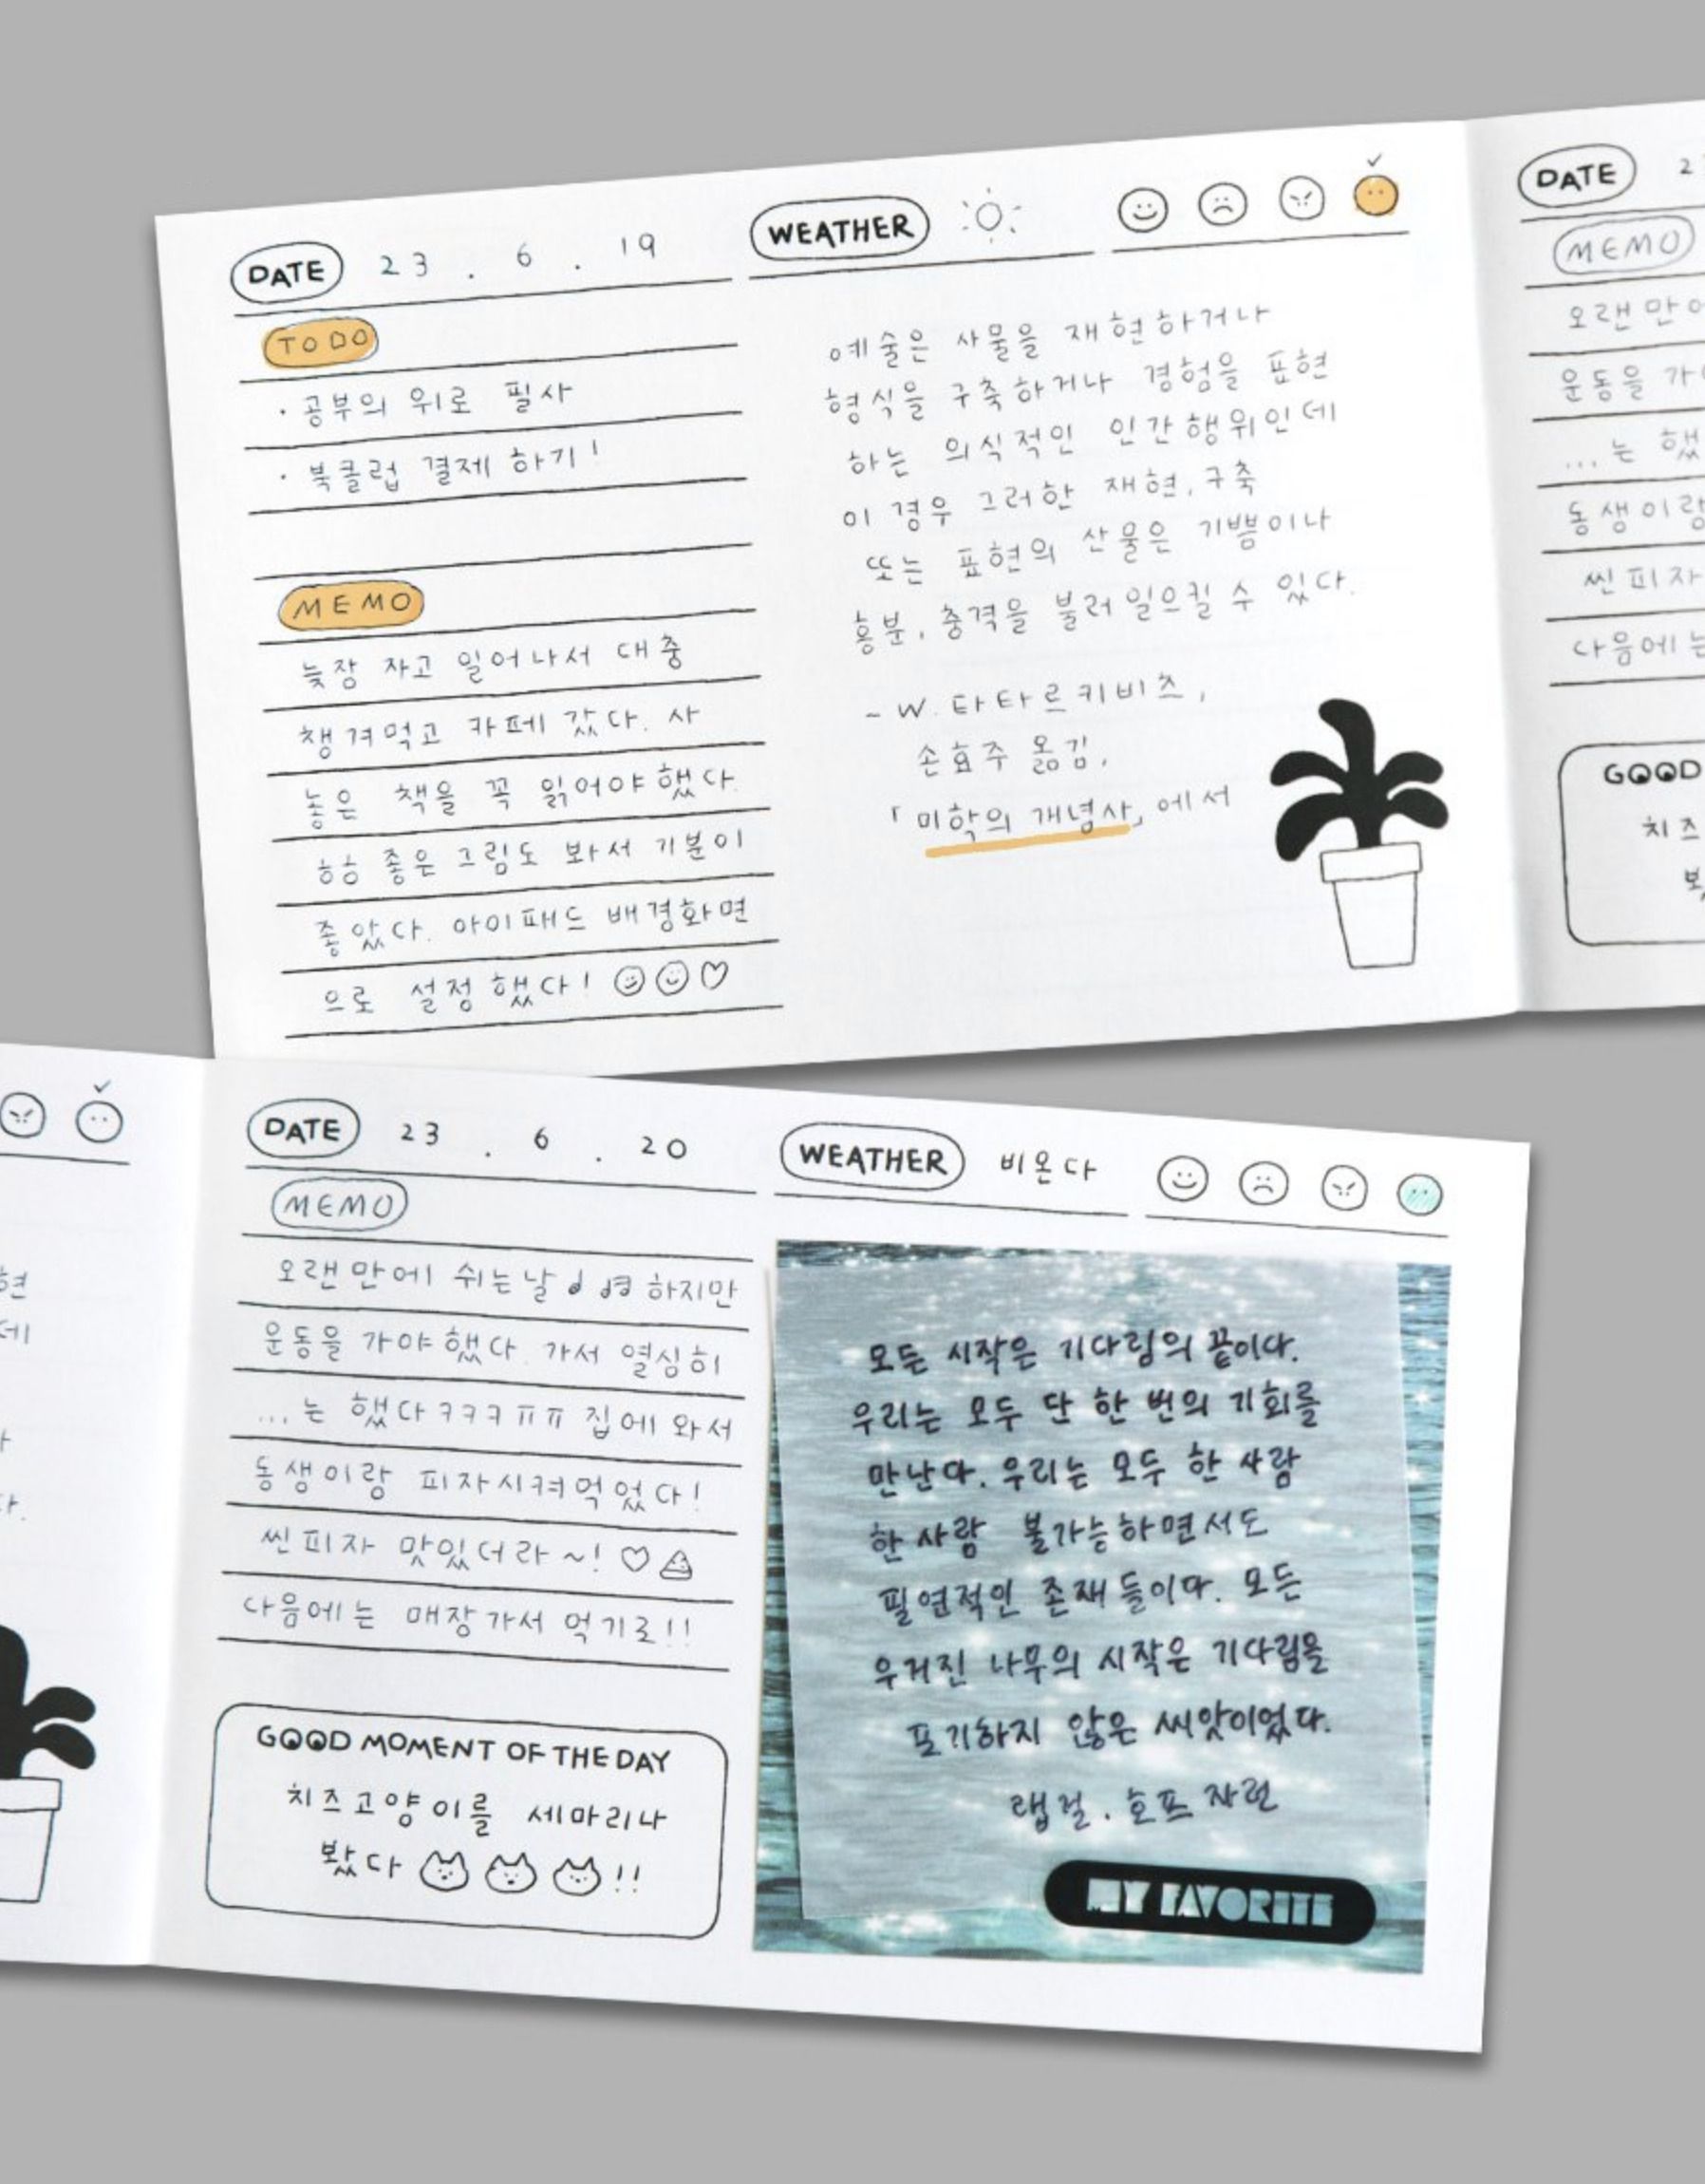 DATE 23 . 6 . 19 WEATHER
TO DO
· 공부의 위로 필사
· 북클럽 결제 하기!
MEMO
늦잠 자고 일어나서 대충
챙겨먹고 카페 갔다. 사
놓은 책을 꼭 읽어야했다.
하하 좋은 그림도 봐서 기분이
좋았다. 아이패드 배경화면
으로 설정했다!
예술은 사물을 재현하거나
형식을 구축하거나 경험을 표현
하는 의식적인 인간행위인데
이 경우 그러한 재현, 구축
또는 표현의 산물은 기쁨이나
흥분, 충격을 불러일으킬 수 있다.
- W. 타타르키비츠,
손효주 옮김,
「미학의 개념사」에서
DATE 2
MEMO
오랜만에
운동을 가
...는 했
동생이랑
씬피자
다음에는
GOOD
치즈
봤
현
데
다.
DATE 23 . 6 . 20 WEATHER 비온다
MEMO
오랜만에 쉬는날 하지만
운동을 가야했다. 가서 열심히
...는 했다ㅋㅋㅋㅠㅠ 집에 와서
동생이랑 피자시켜먹었다!
씬피자 맛있더라~!
다음에는 매장가서 먹기로!!
GOOD MOMENT OF THE DAY
치즈고양이를 세마리나
봤다 !!
모든 시작은 기다림의 끝이다.
우리는 모두 단 한 번의 기회를
만난다. 우리는 모두 한 사람
한 사람 불가능하면서도
필연적인 존재들이다. 모든
우거진 나무의 시작은 기다림을
포기하지 않은 씨앗이었다.
랩걸. 호프 자런
MY FAVORITE